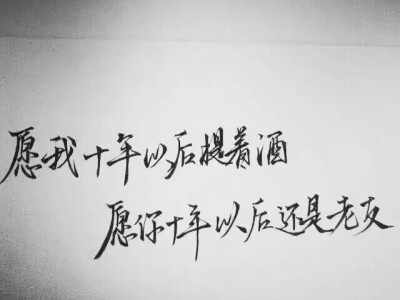 愿我十年以后提着酒
愿你十年以后还是老友